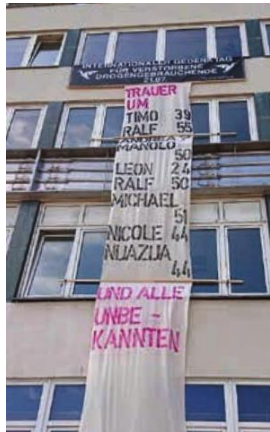 INTERNATIONALER GEDENKTAG
FÜR VERSTORBENE
DROGENGEBRAUCHENDE
21.07.
TRAUER
UM
TIMO 39
RALF 55
MANOLO
50
LEON 24
RALF 50
MICHAEL
51
NICOLE 44
44
UND ALLE
UNBE-
KANNTEN